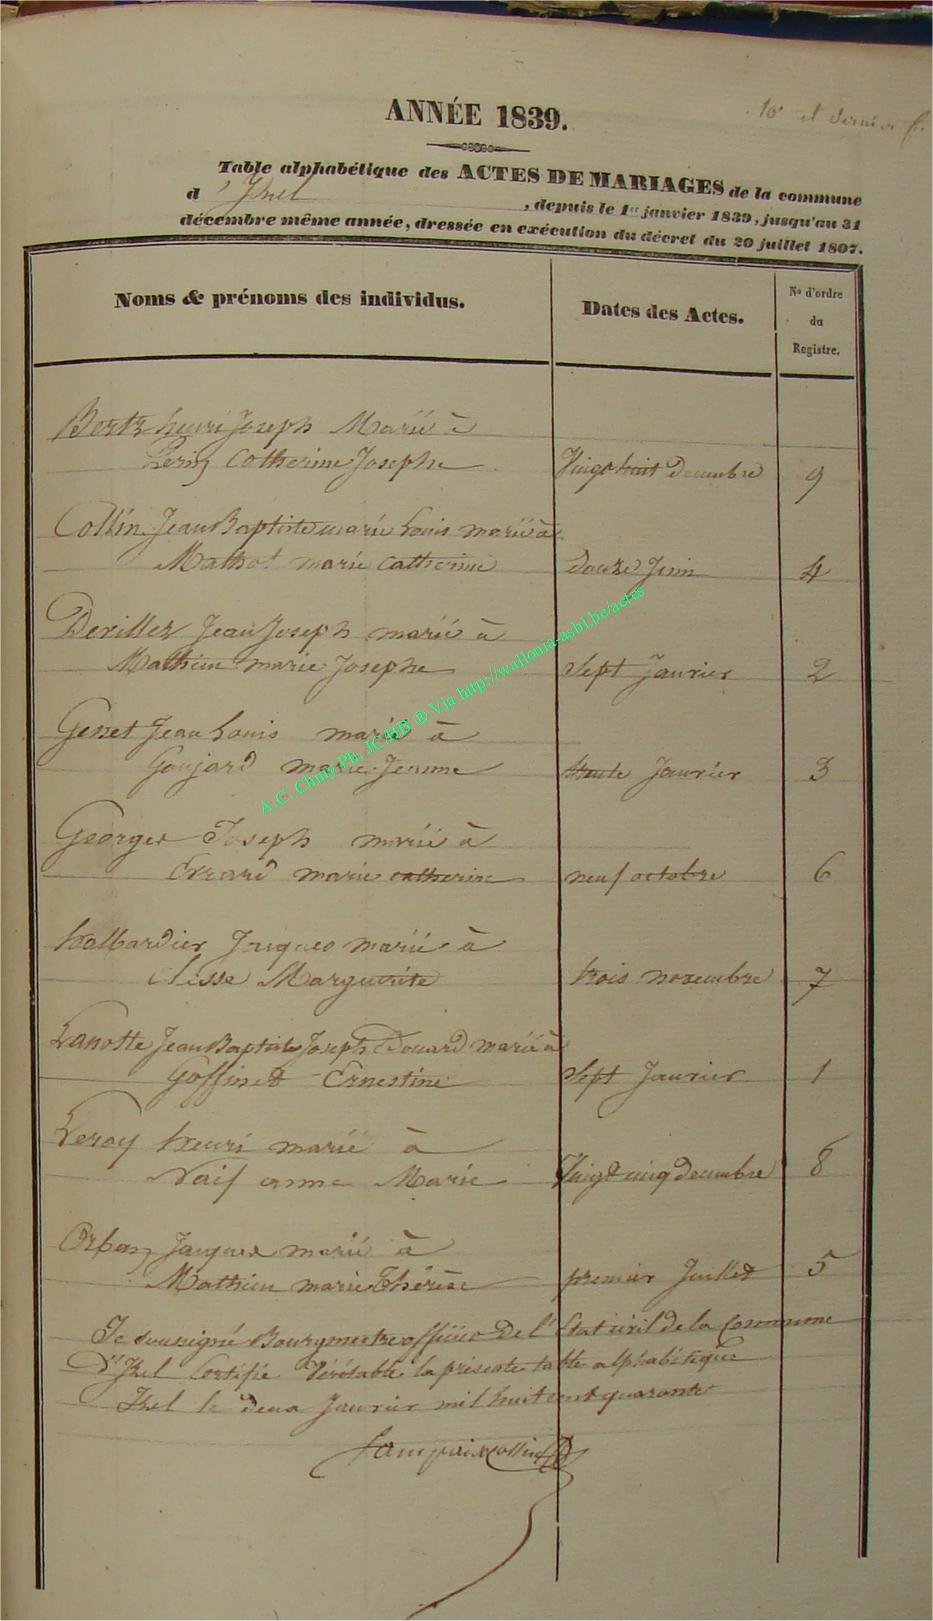 10e et dernier f.
ANNÉE 1839.
Table alphabétique des ACTES DE MARIAGES de la commune
d'Izel, depuis le 1er janvier 1839, jusqu'au 31
décembre même année, dressée en exécution du décret du 20 juillet 1807.
Noms & prénoms des individus.
Dates des Actes.
No d'ordre
du
Registre.
henri Joseph Marié à
Catherine Josephe Vingt huit decembre 9
Collin Jean Baptiste marie Louis marié à
Mathot marie catherine Douze Juin 4
Derillez Jean Joseph marié à
Mathieu marie Josephe Sept Janvier 2
Genet Jean Louis marié à
Goujard marie Jeanne trente Janvier 3
Georges Joseph marié à
Evrard marie catherine neuf octobre 6
halbardier Jacques marié à
Clesse Marguerite trois novembre 7
Lanotte Jean Baptiste Joseph Edouard marié à
Goffinet Ernestine Sept Janvier 1
Leroy henri marié à
Naif anne Marie Vingt cinq decembre 8
Orban Jacques marié à
Mathieu marie Thérèse premier Juillet 5
Je sousigné Bourgmestre officier De l'Etat civil de la Commune
D'Izel Certifie Véritable la présente table alphabétique
Izel le deux Janvier mil huit cent quarante
A.C. Chiny-Ph. JCHB ® Via http://wallonia-asbl.be/actes